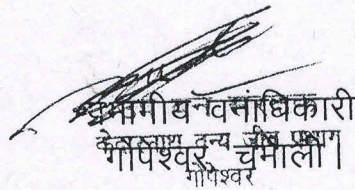 प्रभागीय वनाधिकारी
केदारनाथ वन्य जीव प्रभाग
गोपेश्वर, चमोली।
गोपेश्वर